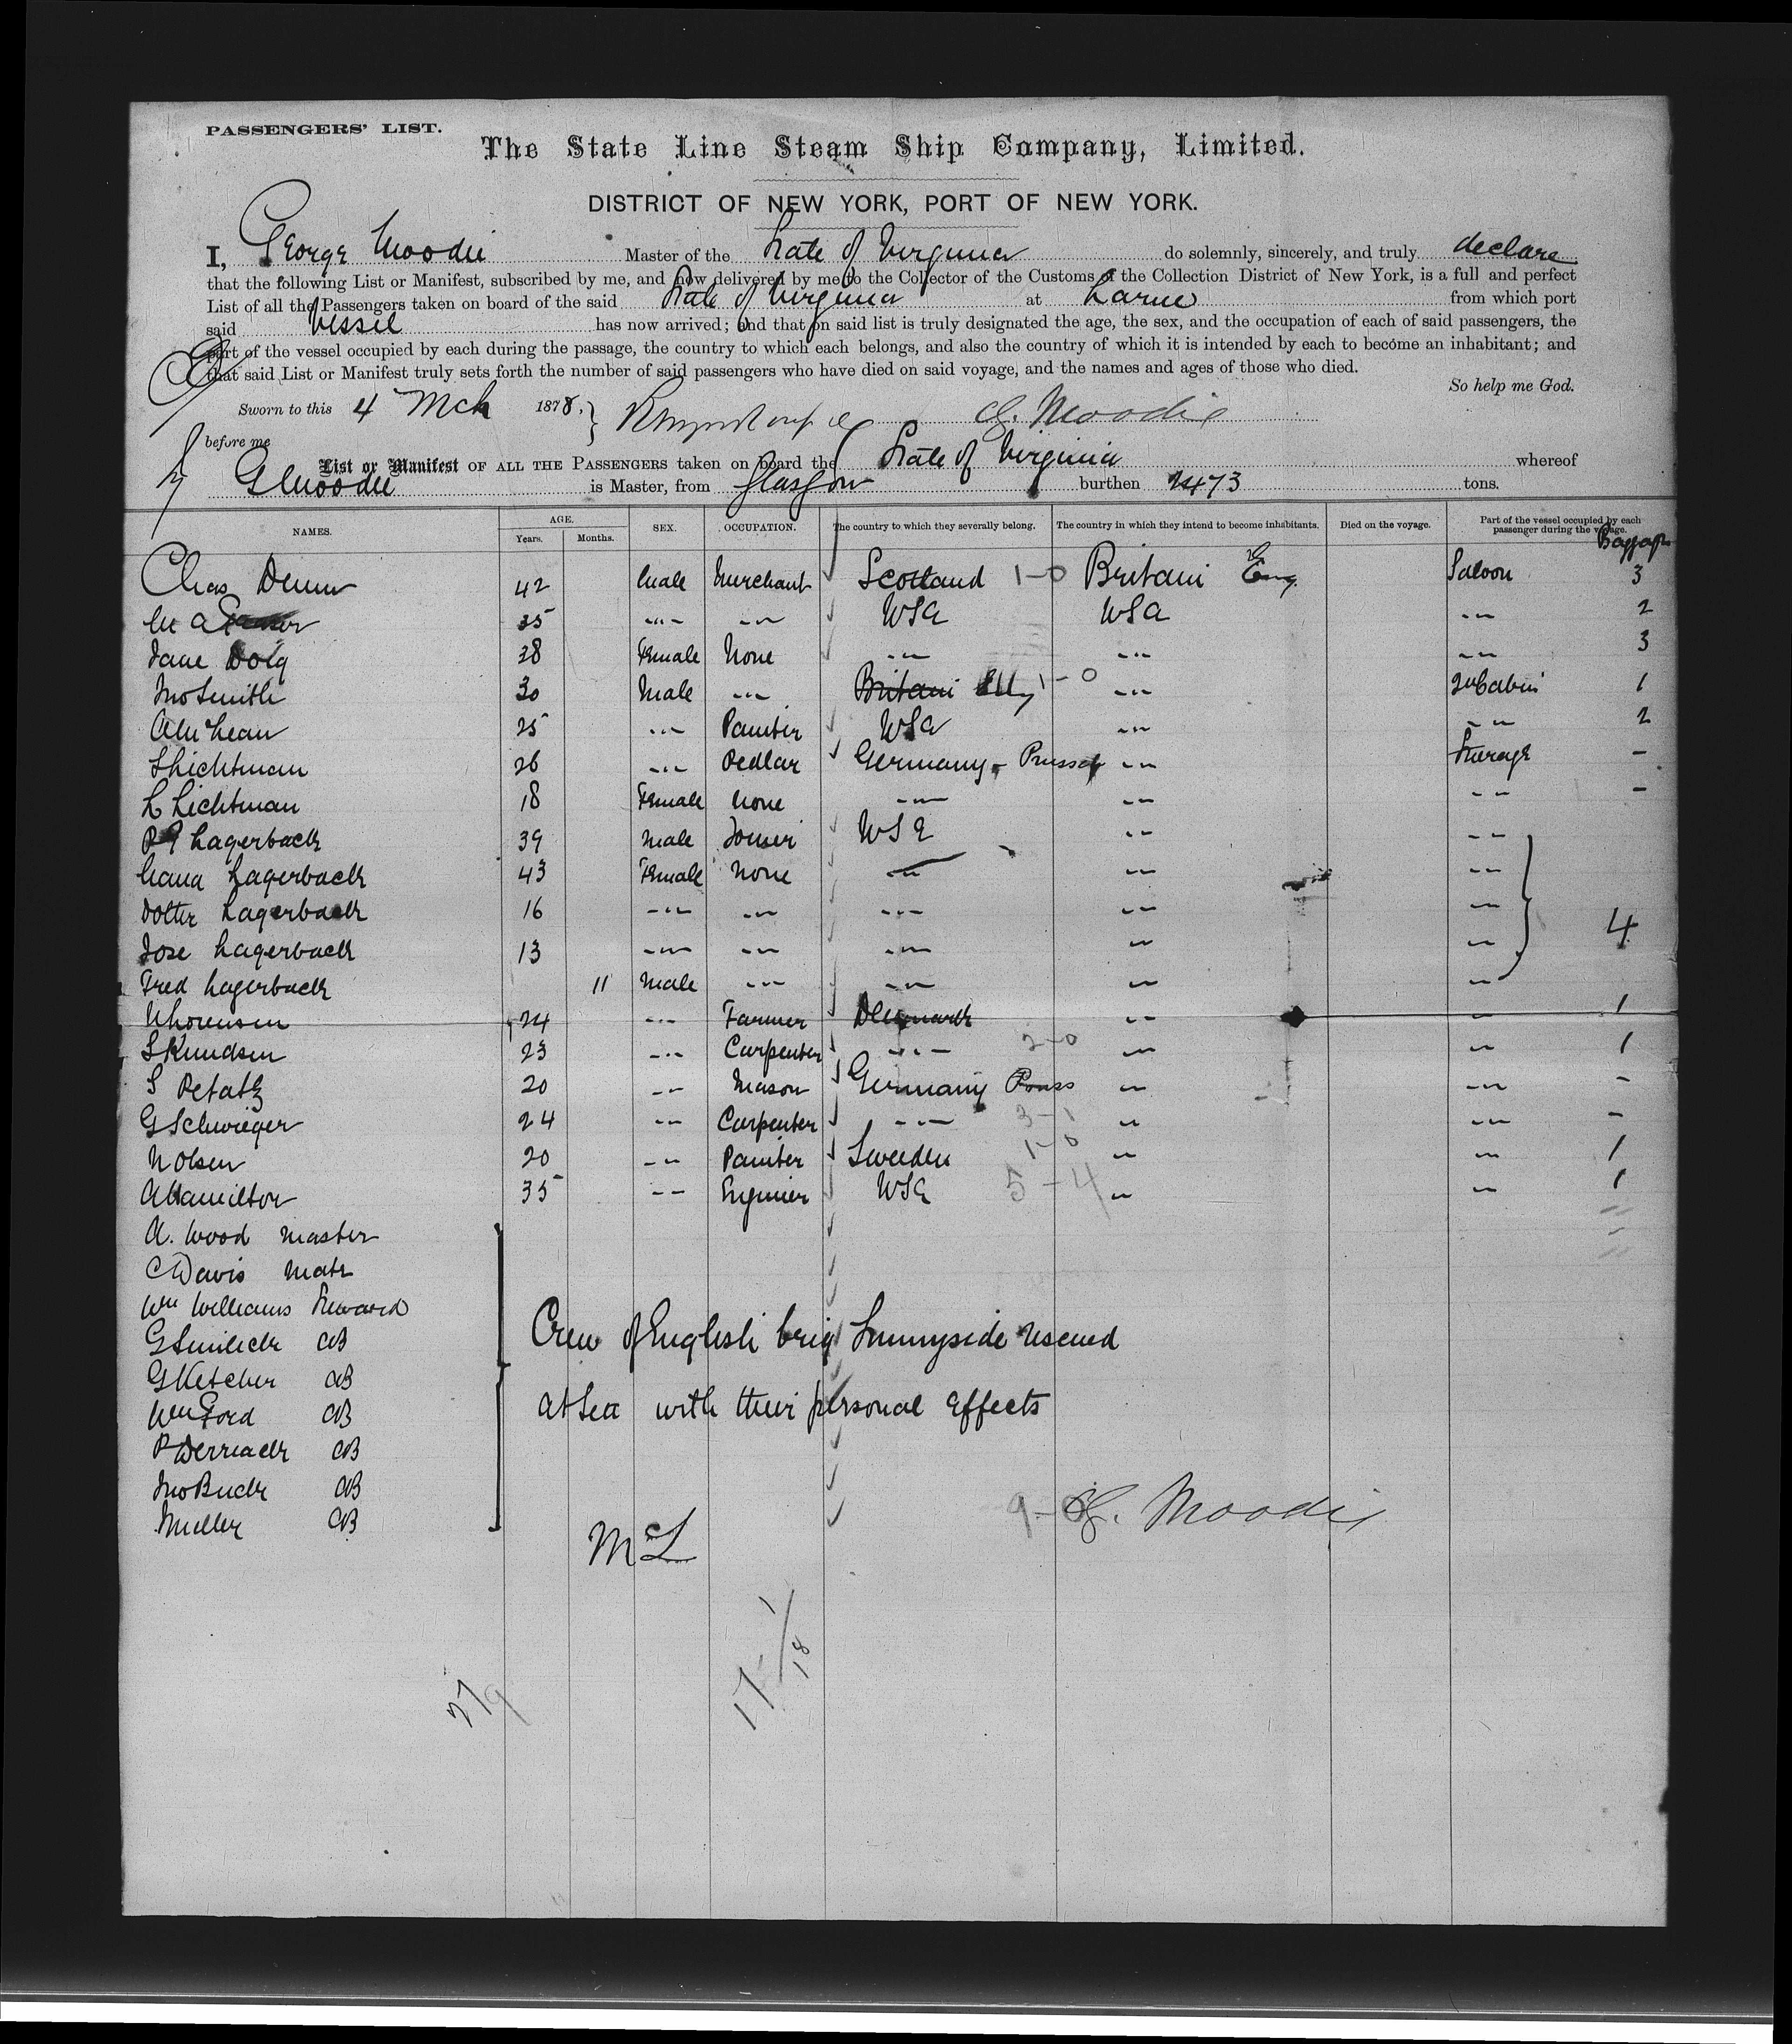 PASSENGERS' LIST.
The State Line Steam Ship Company, Limited.
DISTRICT OF NEW YORK, PORT OF NEW YORK.
I, George Moodie Master of the State of Virginia do solemnly, sincerely, and truly declare
that the following List or Manifest, subscribed by me, and now delivered by me to the Collector of the Customs of the Collection District of New York, is a full and perfect
List of all the Passengers taken on board of the said State of Virginia at Larne from which port
said Vessel has now arrived; and that on said list is truly designated the age, the sex, and the occupation of each of said passengers, the
part of the vessel occupied by each during the passage, the country to which each belongs, and also the country of which it is intended by each to become an inhabitant; and
that said List or Manifest truly sets forth the number of said passengers who have died on said voyage, and the names and ages of those who died.
So help me God.
Sworn to this 4 Mch 1878, G. Moodie
before me
List or Manifest OF ALL THE PASSENGERS taken on board the State of Virginia whereof
G Moodie is Master, from Glasgow burthen 2473 tons.
NAMES. AGE. Years. Months. SEX. OCCUPATION. The country to which they severally belong. The country in which they intend to become inhabitants. Died on the voyage. Part of the vessel occupied by each passenger during the voyage. Baggage
Chas 42 Male Merchant Scotland 1-0 Britain Eng. Saloon 3
35 " " USA USA " 2
Jane Doig 38 Female None " " " 3
Jno Smith 30 Male " Britain 1-0 " 2nd Cabin 1
A McLean 25 " Painter USA " " 2
S Lichtman 26 " Pedlar Germany " Steerage -
L Lichtman 18 Female None " " " -
Lagerback 39 Male Joiner USA " "
Lagerback 43 Female None " " "
Lagerback 16 " " " " "
Jose Lagerback 13 " " " " " 4
Fred Lagerback 11 Male " " " "
N Lorensen 24 " Farmer Denmark " " 1
S Knudsen 23 " Carpenter " 2-0 " " 1
S Petatz 20 " Mason Germany Pruss " " -
G Schwieger 24 " Carpenter " 3-1 " " -
N Olsen 20 " Painter Sweden 1-0 " " 1
A Hamilton 35 " Engineer USA 5-4 " " 1
A. Wood Master
C Davis Mate
Wm Williams Steward
AB
G Ketcher AB
Wm Ford AB
AB
Jno Buck AB
AB
Crew of English brig Sunnyside rescued
at Sea with their personal effects
9-0 G. Moodie
McL
17-1/18
27/9